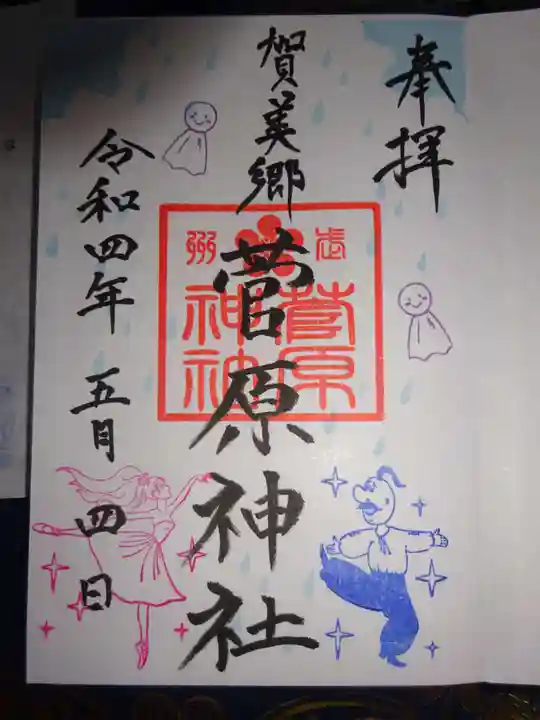 奉拝
賀美郷
菅原神社
令和四年 五月 四日
武州
菅原
神社